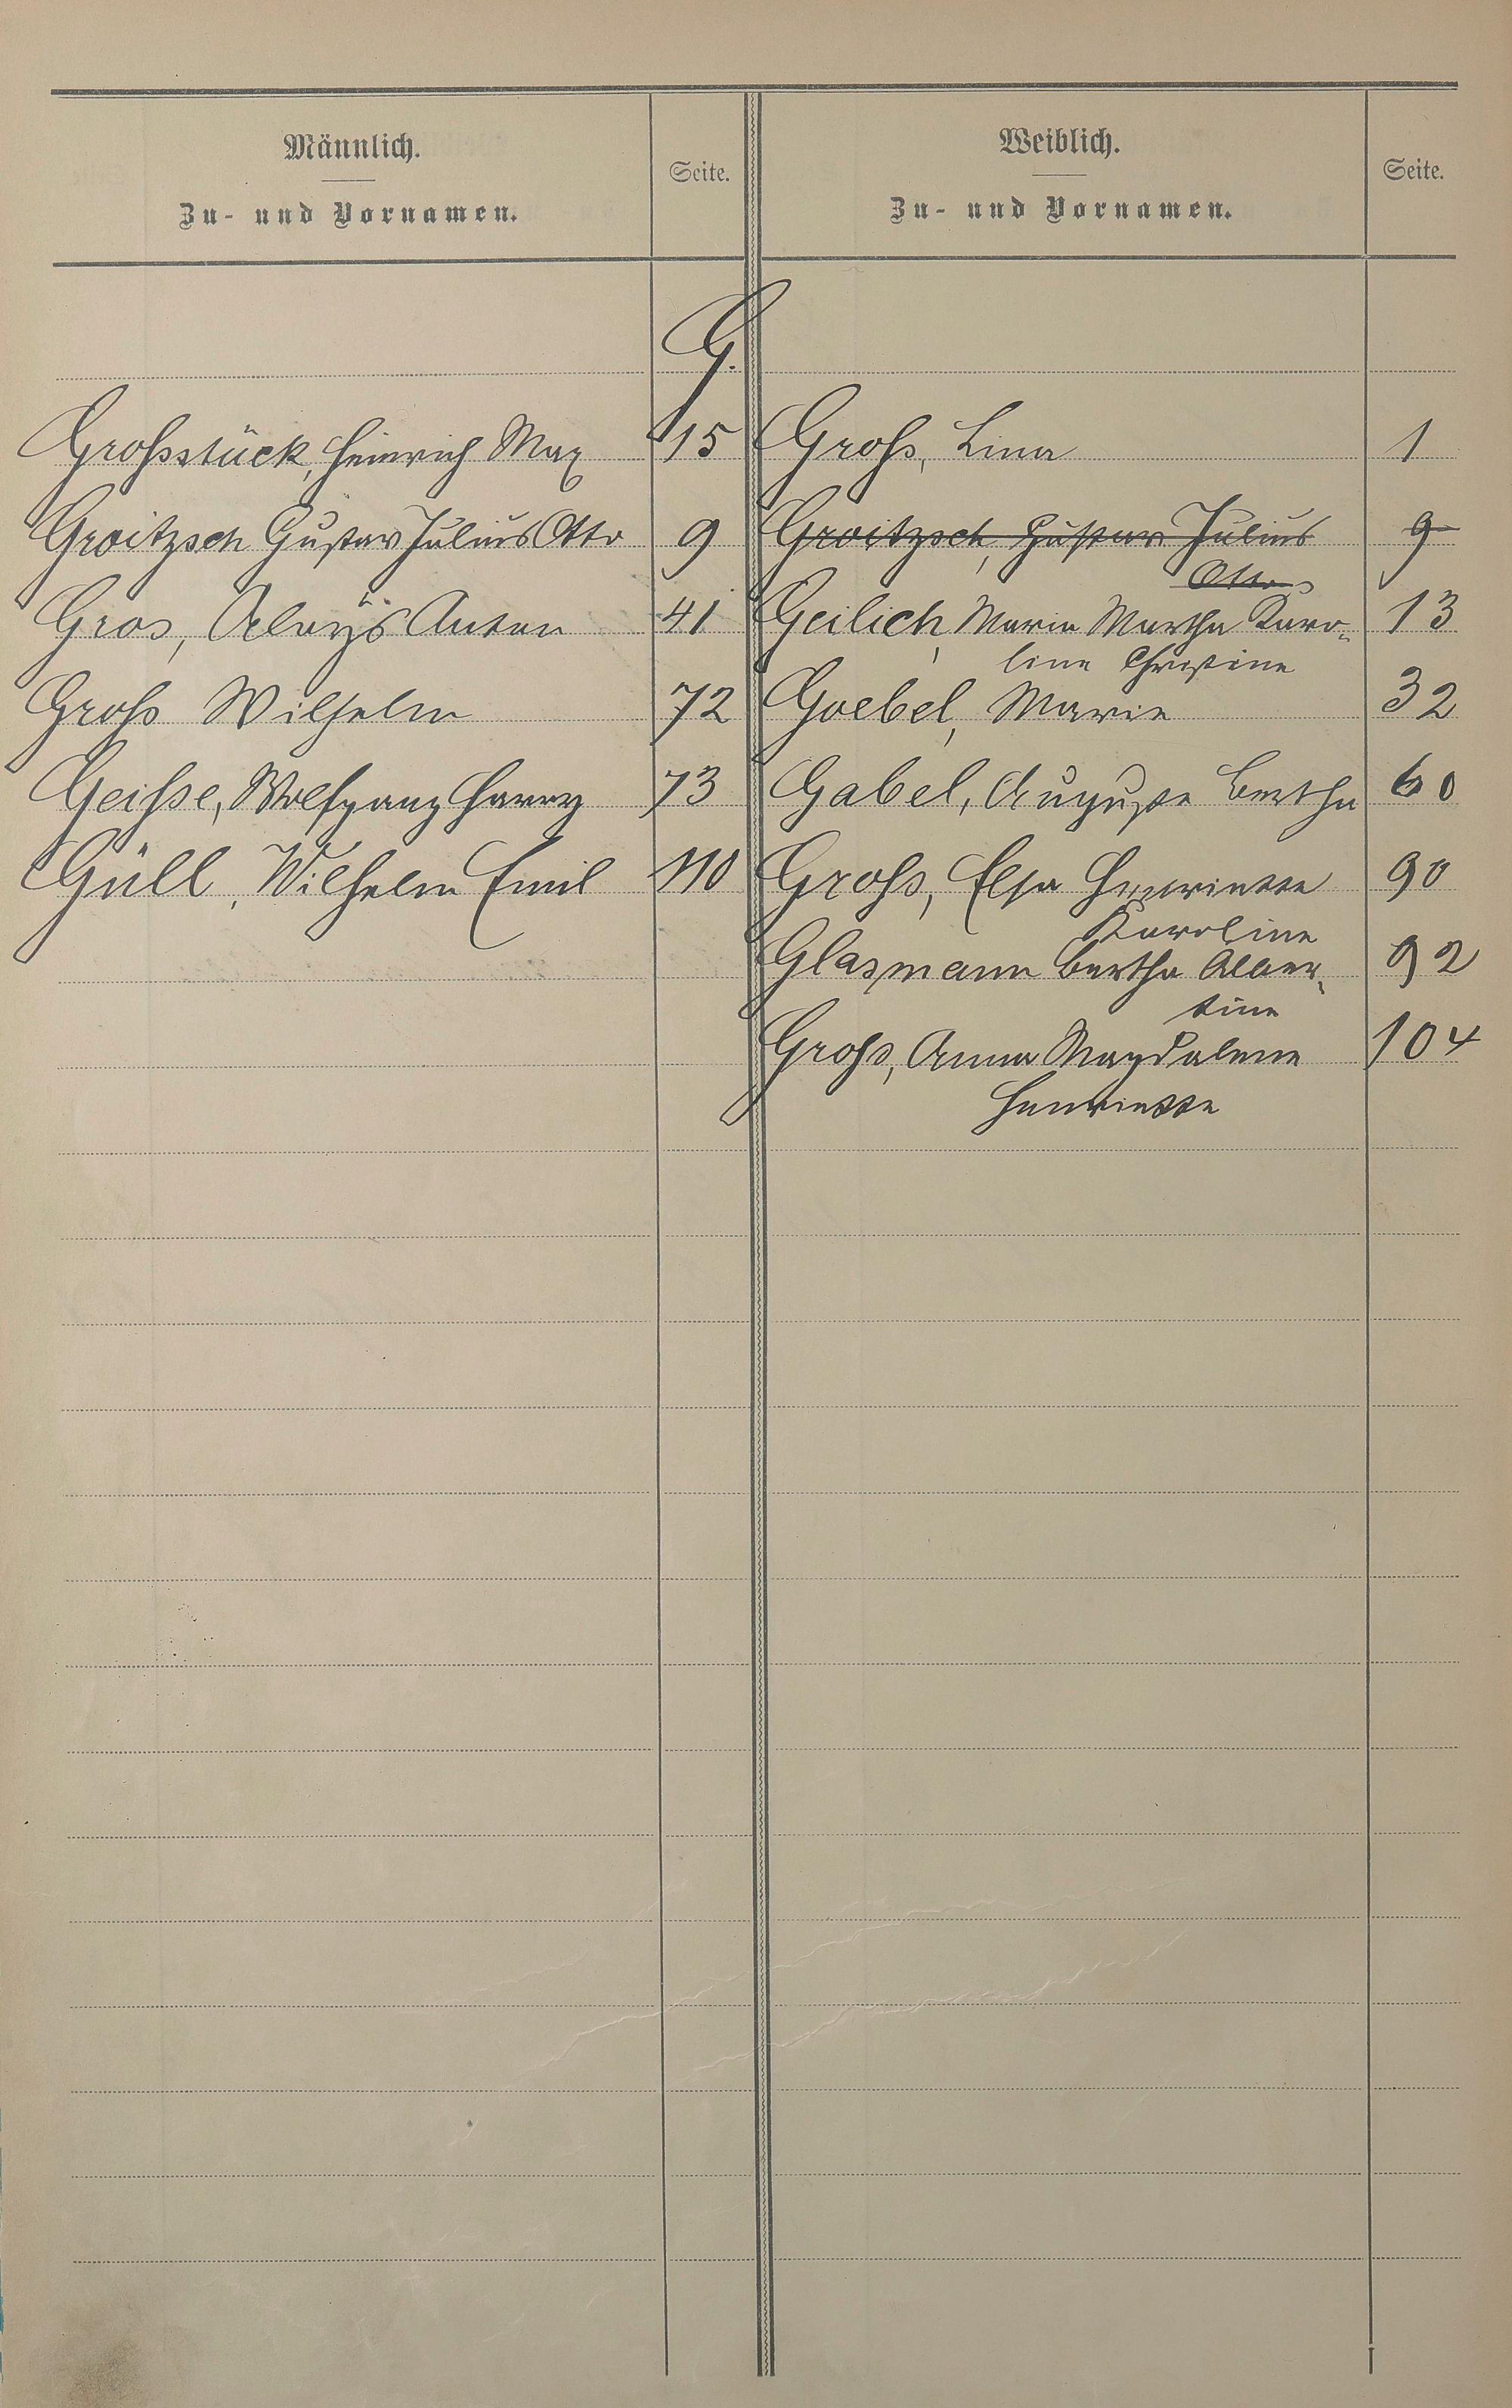 Männlich.
Zu- und Vornamen.
Seite.
Weiblich.
Zu- und Vornamen.
Seite.
G.
Großstück, Heinrich Max 15
Groitzsch Gustav Julius Otto 9
Gros, Aloÿs Anton 41
Groß Wilhelm 72
Geiße, Wolfgang Harry 73
Güll, Wilhelm Emil 110
Groß, Lina 1
Groitzsch, Gustav Julius 9
Otto
Geilich, Maria Martha Karo-
line Christine 13
Goebel, Marie 32
Gabel, Auguste Bertha 60
Groß, Elsa Henriette 90
Karoline
Glasmann Bertha Alber-
tine 92
Groß, Anna Magdalene 104
Henriette